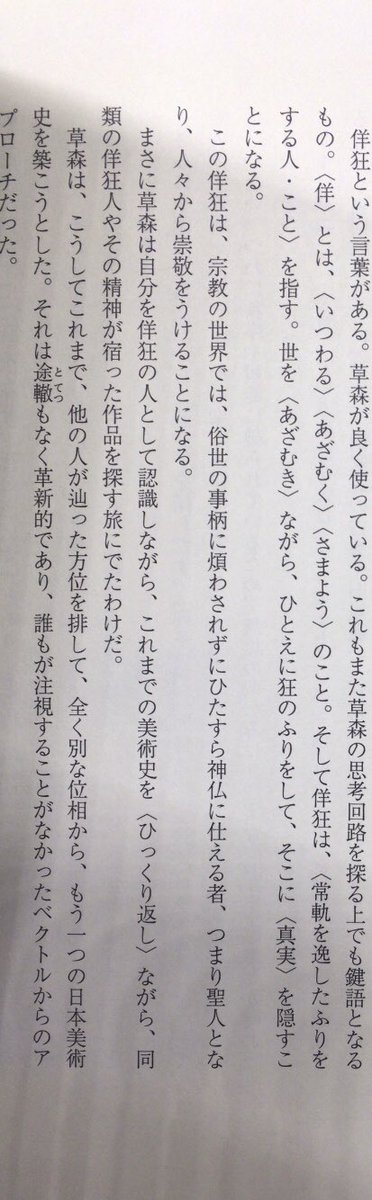 佯狂という言葉がある。草森が良く使っている。これもまた草森の思考回路を探る上でも鍵語となる
もの。〈佯〉とは、〈いつわる〉〈あざむく〉〈さまよう〉のこと。そして佯狂は、〈常軌を逸したふりを
する人・こと〉を指す。世を〈あざむき〉ながら、ひとえに狂のふりをして、そこに〈真実〉を隠すこ
とになる。
この佯狂は、宗教の世界では、俗世の事柄に煩わされずにひたすら神仏に仕える者、つまり聖人とな
り、人々から崇敬をうけることになる。
まさに草森は自分を佯狂の人として認識しながら、これまでの美術史を〈ひっくり返し〉ながら、同
類の佯狂人やその精神が宿った作品を探す旅にでたわけだ。
草森は、こうしてこれまで、他の人が辿った方位を排して、全く別な位相から、もう一つの日本美術
史を築こうとした。それは途轍もなく革新的であり、誰もが注視することがなかったベクトルからのア
とてつ
プローチだった。